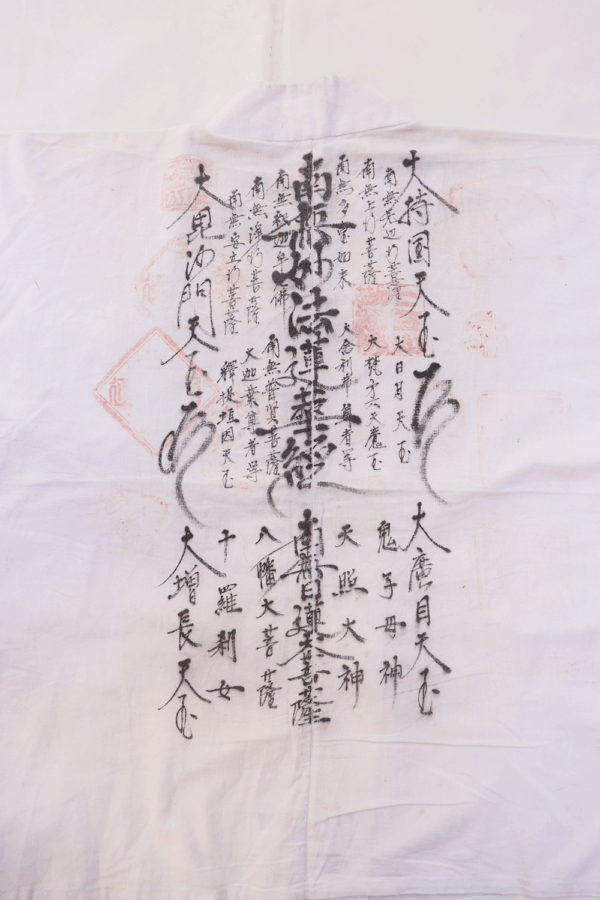 大持国天玉
南無无辺行菩薩
南無上行菩薩
南無多宝如来
南無妙法蓮華經
南無釈迦牟尼佛
南無浄行菩薩
南無安立行菩薩
大毘沙門天玉
大日月天玉
大梵天六天魔玉
大舎利弗尊者等
南無普賢菩薩
大迦葉尊者等
釋提垣因天玉
大廣目天玉
鬼子母神
天照大神
南無日蓮大菩薩
八幡大菩薩
十羅刹女
大増長天玉